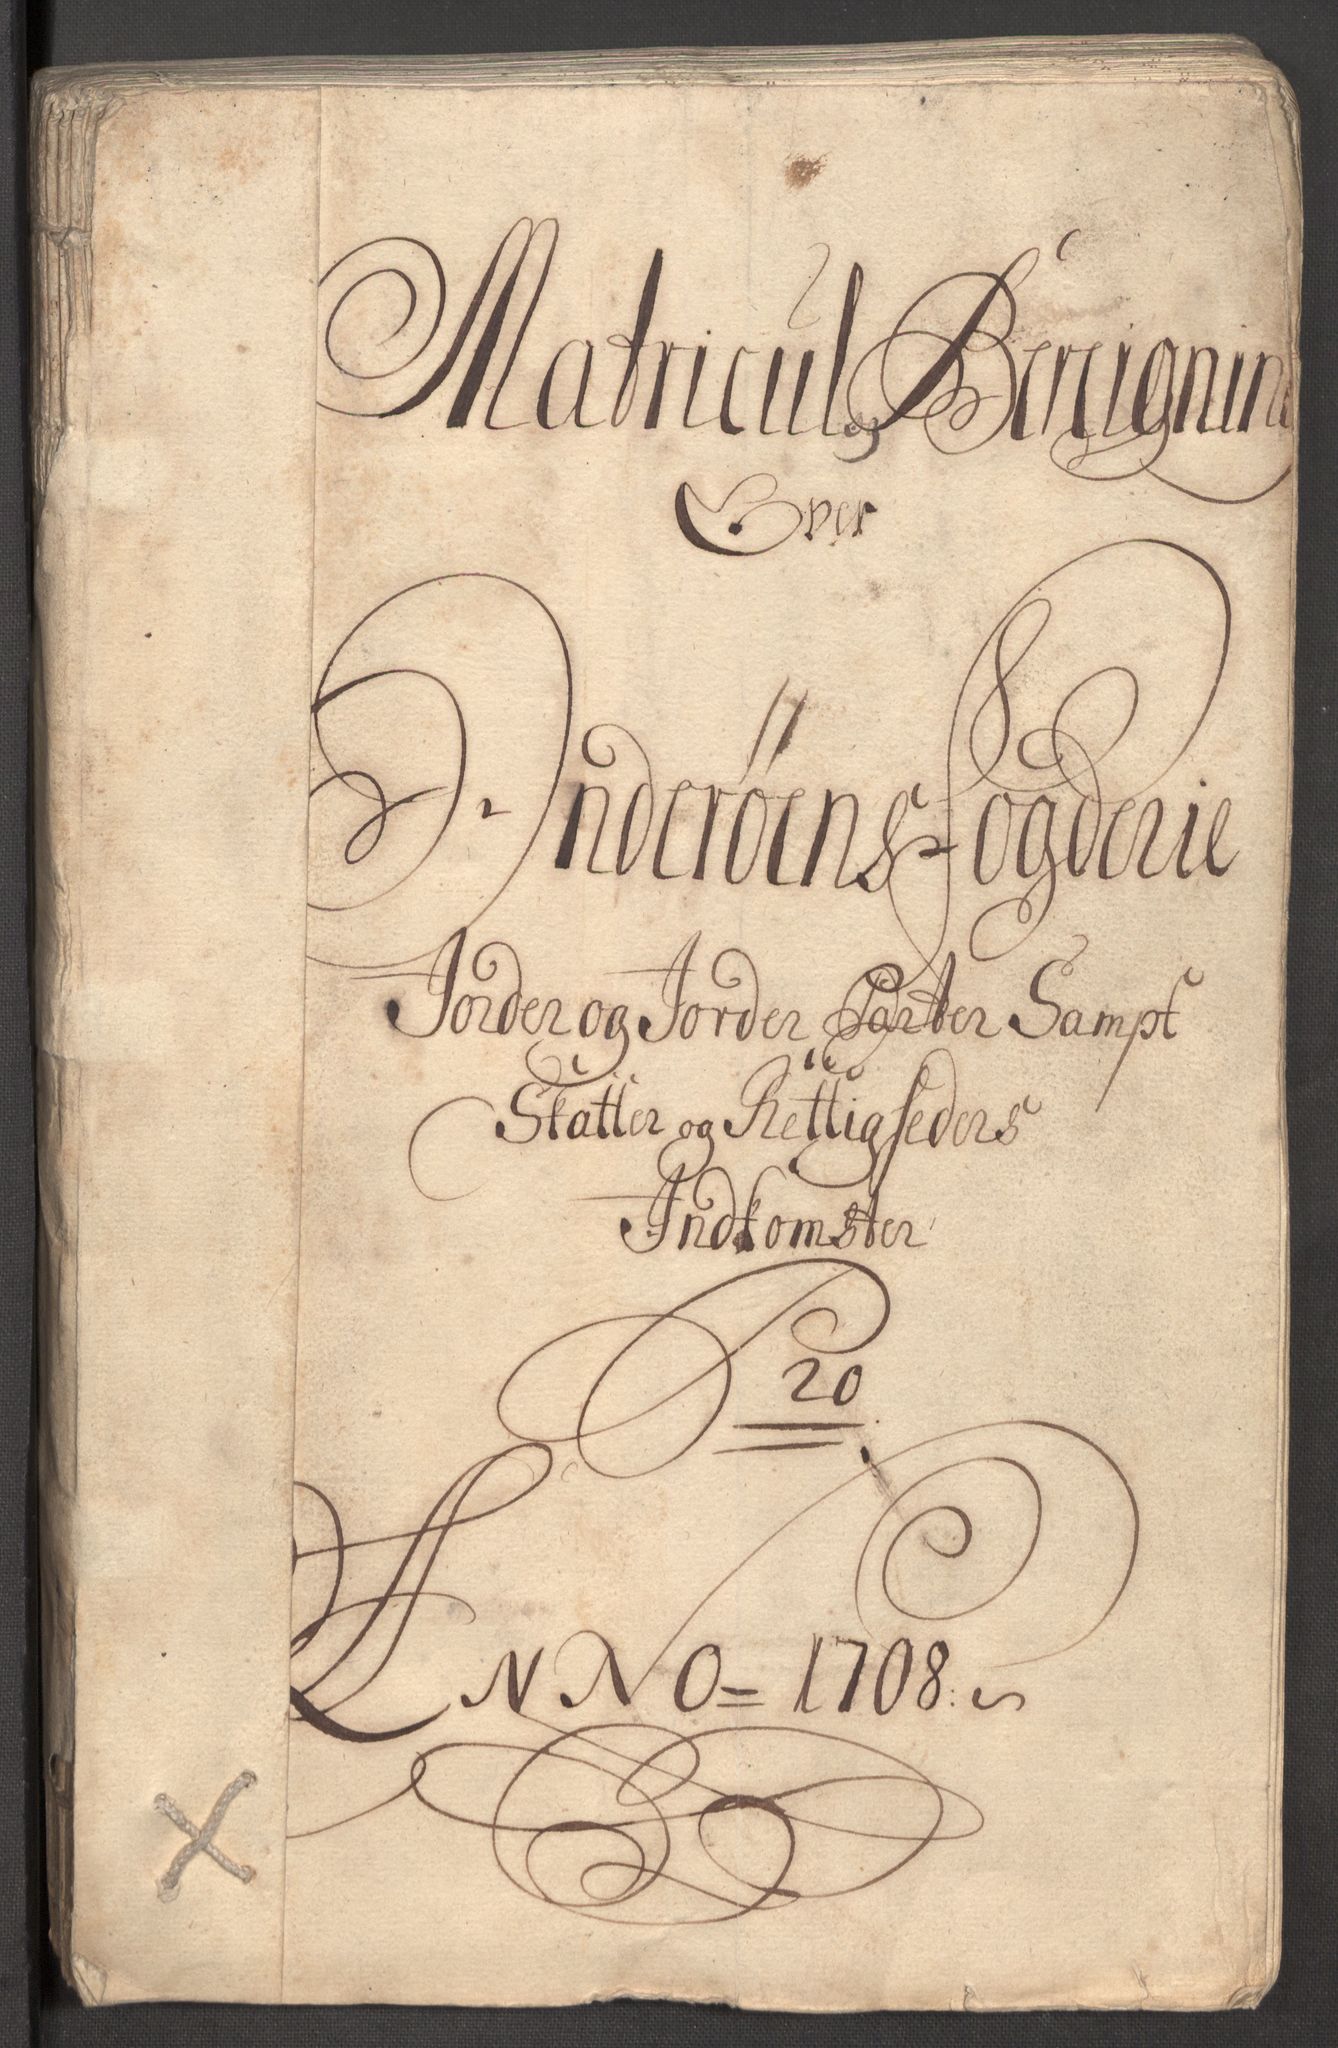 Matricul og Bereigning
Over
Inderöens Fogderie
Jorder og Jorder Parter Sampt
Skatter og Rettigheders
Indkomster
20
ANNO = 1708